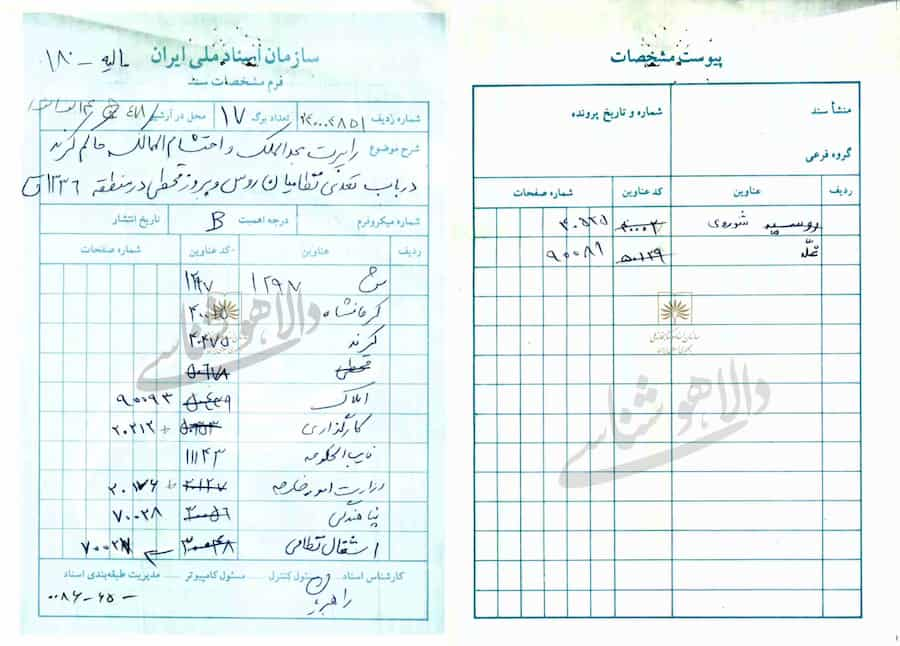 سازمان اسناد ملی ایران
فرم مشخصات سند
مالیه - ۱۸۰
شماره ردیف ۲۴۰۰۰۴۸۵۱ تعداد برگ ۱۷ محل در آرشیو
شرح موضوع راپرت مجدالملک و احتشام الممالک حاکم کرند
در باب تعدی نظامیان روس و بروز قحطی در منطقه ۱۳۳۶ق
شماره میکروفرم درجه اهمیت B تاریخ انتشار
ردیف عناوین کد عناوین شماره صفحات
سرخ ۱۲۹۷ ۱۲۹۷
کرمانشاه ۴۰۰۱۵
کرند ۴۰۴۷۵
قحطی ۵۰۶۷۸
املاک ۹۰۰۹۳
کارگذاری ۲۰۲۱۲
نایب الحکومه ۱۱۱۴۳
وزارت امور خارجه ۲۰۱۷۶
پناهندگی ۳۰۰۵۶ ۷۰۰۲۸
اشغال نظامی ۳۰۰۴۸ ۷۰۰۲۷
کارشناس اسناد مسئول کنترل مسئول کامپیوتر مدیریت طبقه‌بندی اسناد
راهبر
۰۰۸۶-۶۵-
پیوست مشخصات
منشأ سند شماره و تاریخ پرونده
گروه فرعی
ردیف عناوین کد عناوین شماره صفحات
روسیه شوروی ۴۰۰۰۲ ۴۰۵۲۵
غله ۵۰۱۲۹ ۹۰۰۸۹
دالاهوشناسی
دالاهوشناسی